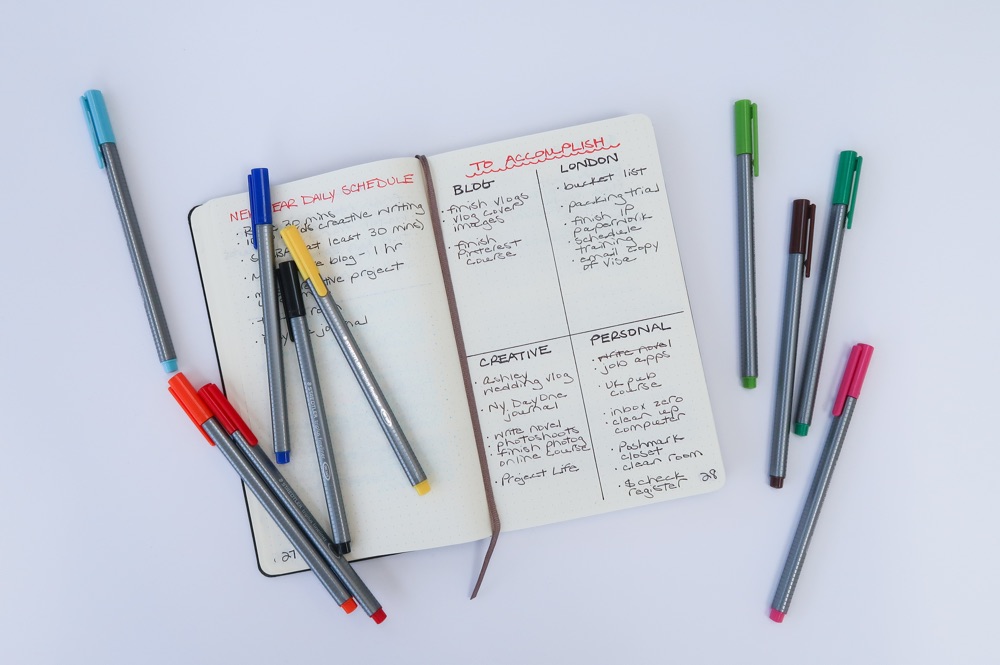 DAILY SCHEDULE
30 mins
creative writing
at least 30 mins)
blog - 1 hr
project
journal
27
TO ACCOMPLISH
BLOG
• finish vlogs
• vlog covers
images
• finish
pinterest
course
LONDON
• bucket list
• packing trial
• finish IP
paperwork
• schedule
training
• email copy
of visa
CREATIVE
• ashley
wedding vlog
• NY Day One
journal
• write novel
• photoshoots
• finish photog
online course
• Project Life
PERSONAL
• write novel
• job apps
• UK pub
course
• inbox zero
• clean up
computer
• Poshmark
closet
• clean room
• $ check
register
28
STAEDTLER